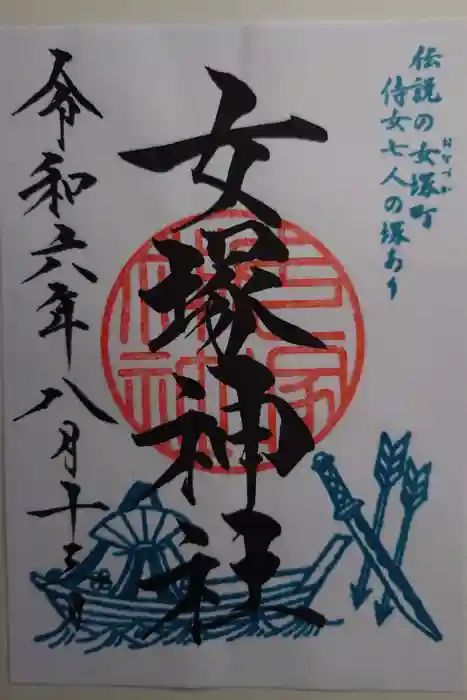 伝説の女塚町
おなづか
侍女七人の塚あり
女塚神社
令和六年八月十三日